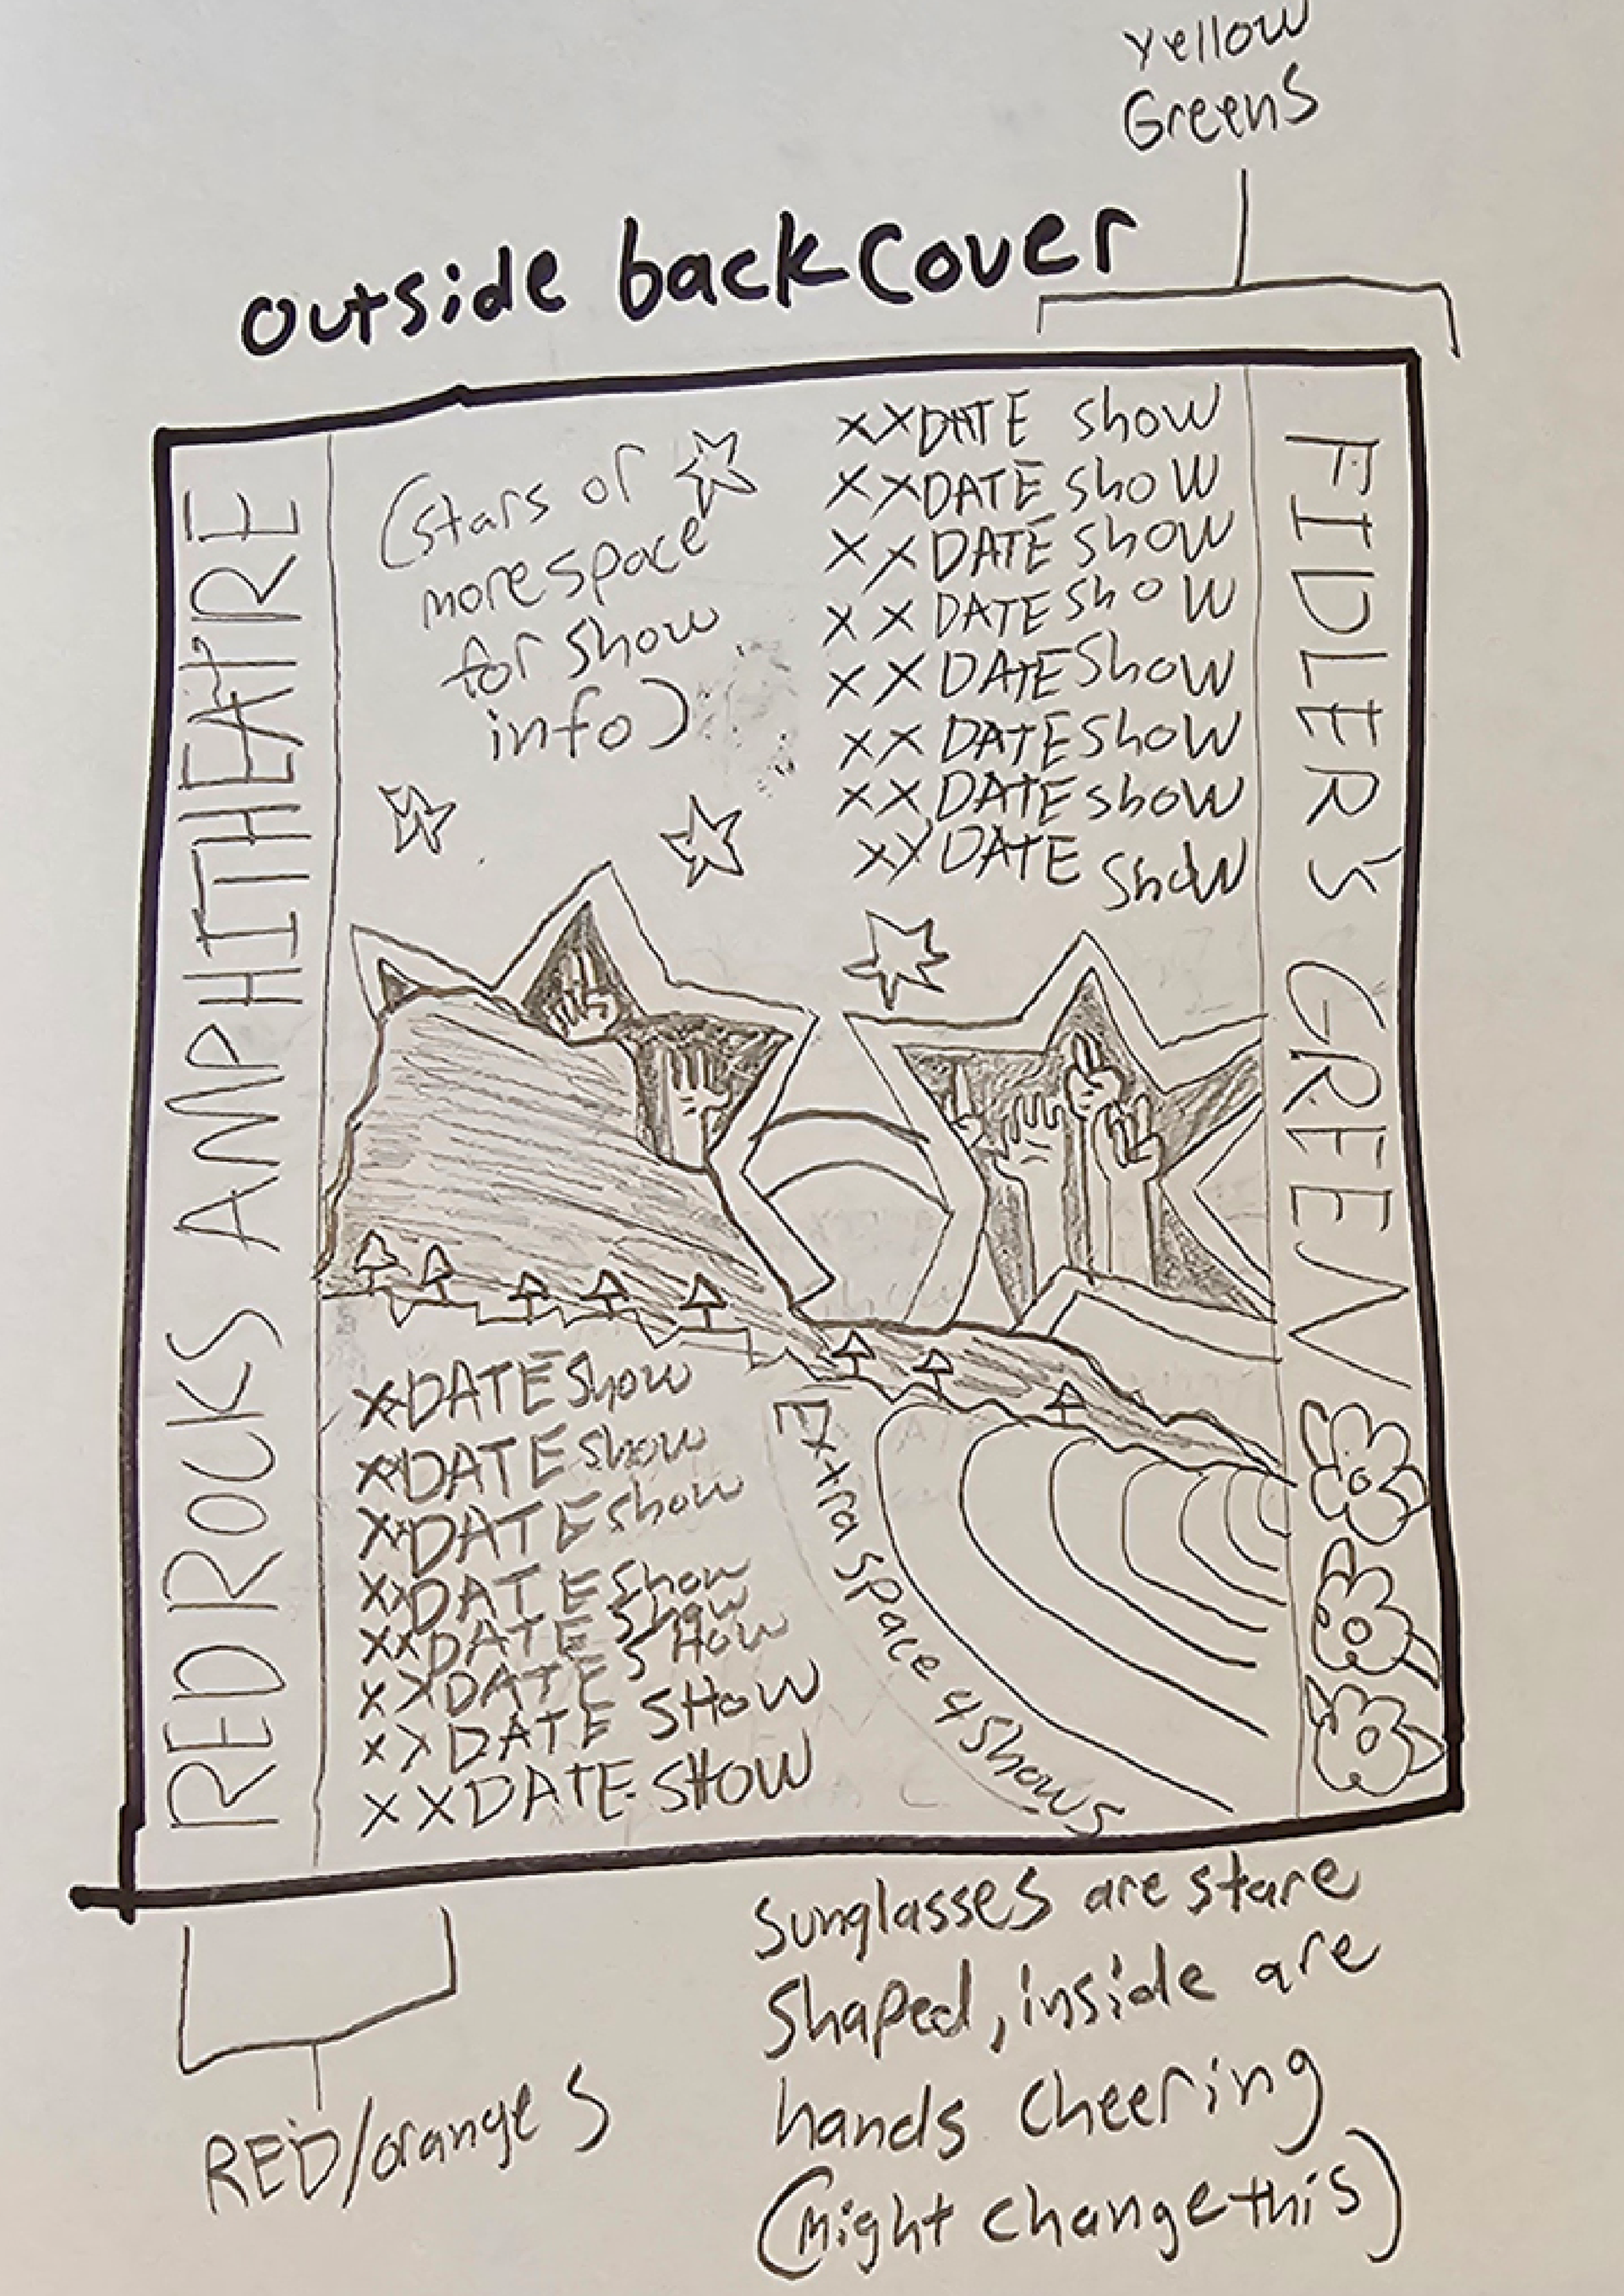 Yellow
Greens
outside back cover
RED ROCKS AMPHITHEATRE
(stars or
more space
for show
info)
XXDATE show
XXDATE show
XXDATE show
XXDATE show
XXDATE show
XXDATE show
XXDATE show
XXDATE show
FIDLER'S GREEN
XXDATE show
XXDATE show
XXDATE show
XXDATE show
XXDATE show
XXDATE SHOW
XXDATE SHOW
XXDATE SHOW
Extra space 4 shows
RED/oranges
Sunglasses are stare
shaped, inside are
hands cheering
(might change this)